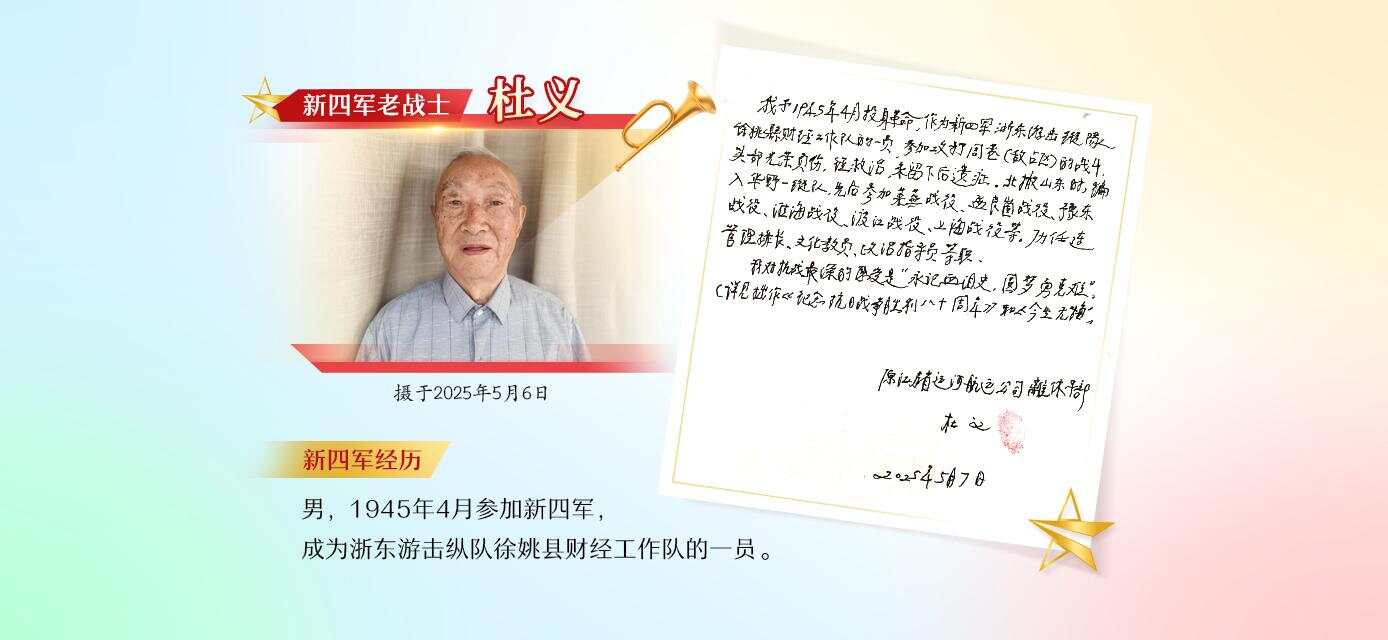 新四军老战士 杜义
摄于2025年5月6日
新四军经历
男，1945年4月参加新四军，
成为浙东游击纵队徐姚县财经工作队的一员。
我于1945年4月投身革命，作为新四军浙东游击纵队
徐姚县财经工作队的一员，参加攻打周巷（敌占区）的战斗，
头部光荣负伤，经救治，未留下后遗症。北撤山东时，编
入华野一纵队，先后参加莱芜战役、孟良崮战役、豫东
战役、淮海战役、渡江战役、上海战役等。历任连
管理排长、文化教员、政治指导员等职。
我对抗战最深的感受是“永记血泪史，圆梦勇克难”。
（详见拙作《纪念抗日战争胜利八十周年》和《今生无悔》）
原江苏省运河航运公司离休干部
杜义
2025年5月7日